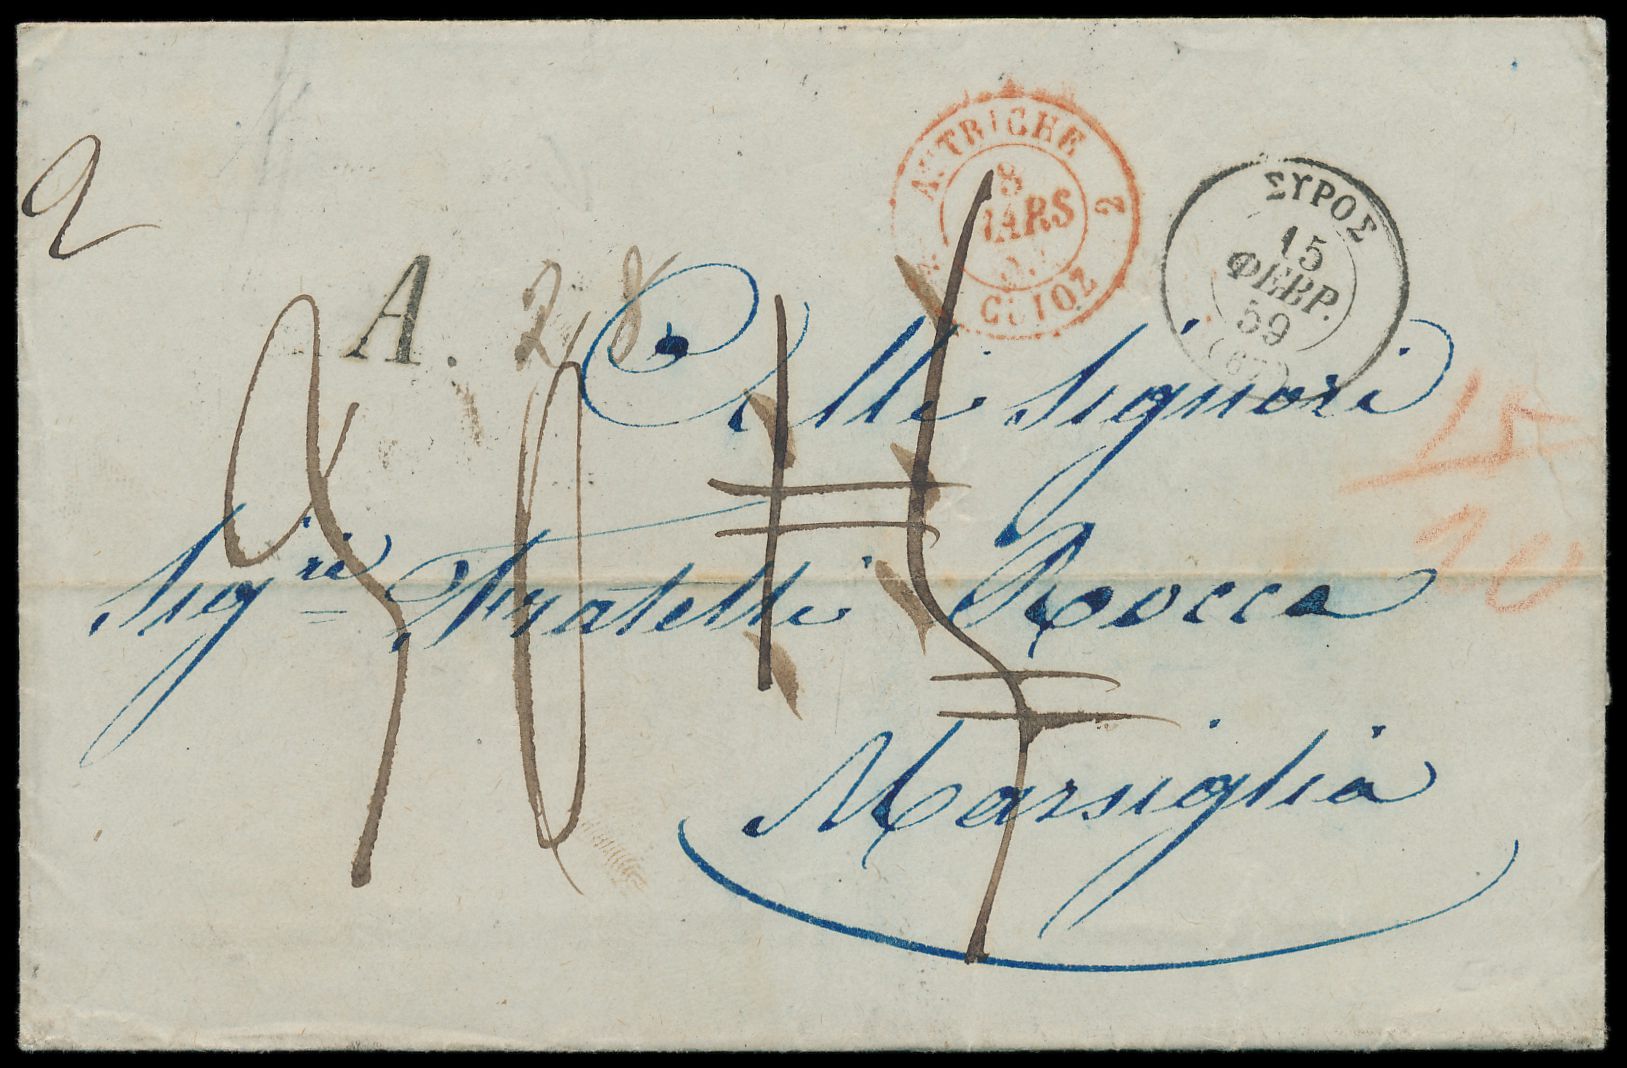 2
AUTRICHE
8
MARS
CULOZ
2
ΣΥΡΟΣ
15
ΦΕΒΡ.
59
(67)
A.
28
Alli Signori
Sigri Fratelli Rocca
Marsiglia
15
20